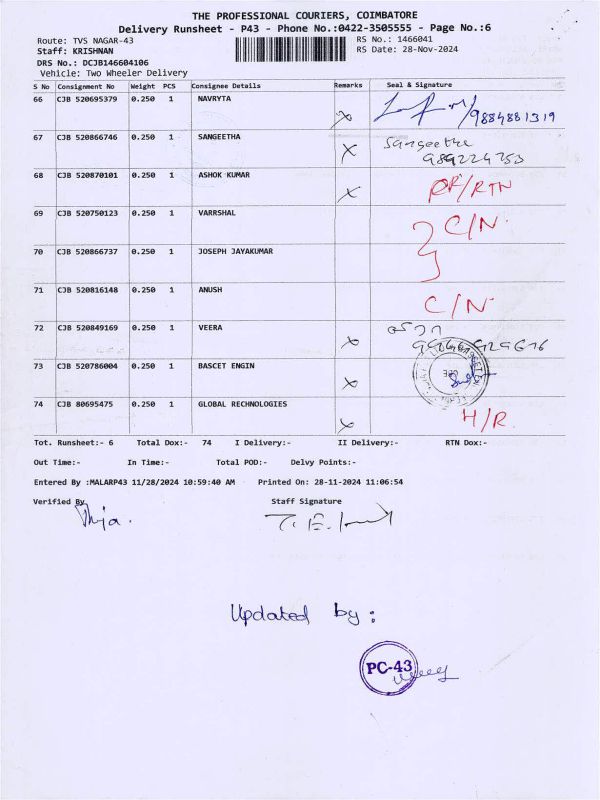 THE PROFESSIONAL COURIERS, COIMBATORE
Delivery Runsheet - P43 - Phone No.:0422-3505555 - Page No.:6
Route: TVS NAGAR-43
RS No.: 1466041
Staff: KRISHNAN
RS Date: 28-Nov-2024
DRS No.: DCJB146604106
Vehicle: Two Wheeler Delivery
S No Consignment No Weight PCS Consignee Details Remarks Seal & Signature
66 CJB 520695379 0.250 1 NAVRYTA
9884881319
67 CJB 520866746 0.250 1 SANGEETHA Sangeetha
68 CJB 520870101 0.250 1 ASHOK KUMAR /RTN
69 CJB 520750123 0.250 1 VARRSHAL C/N
70 CJB 520866737 0.250 1 JOSEPH JAYAKUMAR
71 CJB 520816148 0.250 1 ANUSH C/N
72 CJB 520849169 0.250 1 VEERA
73 CJB 520786004 0.250 1 BASCET ENGIN
74 CJB 80695475 0.250 1 GLOBAL RECHNOLOGIES H/R
Tot. Runsheet:- 6 Total Dox:- 74 I Delivery:- II Delivery:- RTN Dox:-
Out Time:- In Time:- Total POD:- Delvy Points:-
Entered By :MALARP43 11/28/2024 10:59:40 AM Printed On: 28-11-2024 11:06:54
Verified By Staff Signature
Updated by:
PC-43